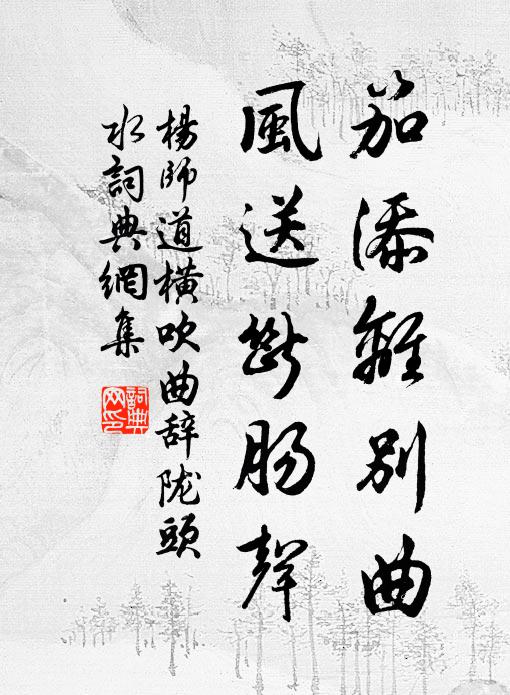 笳添離別曲
風送斷腸聲
楊師道横吹曲辞陇頭
水詞典網集
詞典
网印